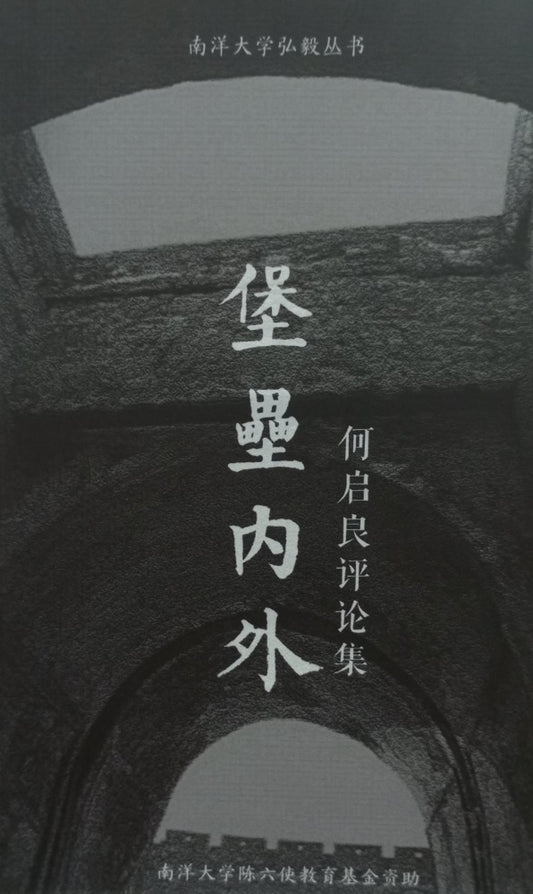 南洋大学弘毅丛书
堡壘内外
何启良评论集
南洋大学陈六使教育基金资助